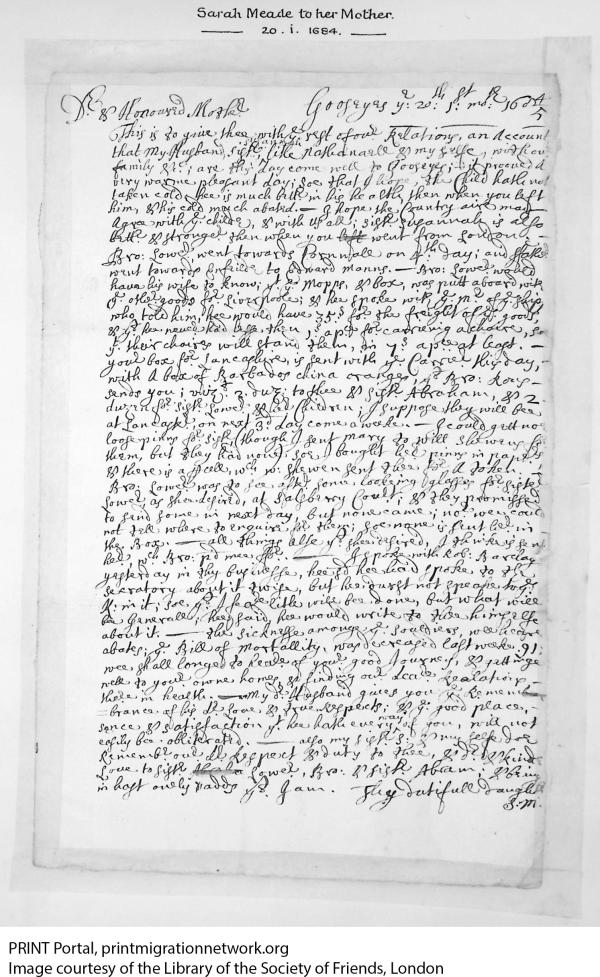 Sarah Meade to her Mother.
20. i. 1684.
& Honoured Mother Gooseyes ye 20th 1st mo: 168 4/5
This is to give thee, with ye rest of our Relations, an Account
that My Husband, like Nathanaell & my selfe, with our
family &c; are this day come well to Gooseyes; it proved a
very warme pleasant day; soe that I hope, the Child hath not
taken cold, hee is much better in his health, then when you left
him, & his cold much abated. — I hope the Country aire may
Agree with ye childe, & with us all; sistr Susannah is also
bettr & stronger then when you left went from London, —
Bro: Lower went towards Cornwall on 4th day; and
went towards Enfeild to Edward Manns. — Bro: Lower would
have his wife to know, yt ye Mopps, & box, was putt aboard with
ye other goods for Liverpoole; & hee spoke with ye mr of ye ship
who told him, hee would have 35s for the freight of ye goods
& yt hee never had less, then 5s a pec for carrieing a chaire, so
yt their chaires will stand them, in 5s a pece at least. —
your box for Lancashire, is sent with ye Carrier this day,
with A box of Barbados China oranges, yt Bro: Rous —
sends you; vizt 2 duz: to thee & sistr Abraham, & 2 —
duzen for sistr Lower & her Children; I suppose they will bee
at Lancastr on next 3d day come a weeke. — I could gett noe
loose pinns for sistr, though I sent Mary to Will Shewens for
them, but they had none; soe I bought her pinns in paprs
& there is a wch w: Shewen sent thee for A token. —
Bro: Lower was to see after some looking glasses for sister
Lower, as shee desired, at Salsberry Court; & they promissed
to send some in next day, but none came; nor wee could
not tell where to enquire for them; soe none is sent her in
the Box. — all things else yt shee desired, I thinke is sent
her, wch Bro: pd mee for. — I spoke with Rob: Barclay
yesterday in thy businesse, hee sd hee had spoke to the
secretary about it twise, but hee durst not speake to ye
K: in it; soe yt I feare little will bee done, but what will
be Generall; hee said hee would write to thee himselfe
about it. — The sickness amongst ye souldiers, wee heare
abates; ye Bill of Mortallity, was decreased last weeke 91:
wee shall longe to heare of your good Journey, & getting
well to your owne homes, & finding our deare Realations,
there in health. — My dr Husband gives you ye Remem-
brance of his dr Love, & true Respects; & ye good place, —
sence & satisfaction yt hee hath every way of you, will not
easily bee obliterated. — also my sistr S: & my selfe doe
Remember our dr Respect & duty to thee, & dr & kind
Love to sistr Lower, Bro: & sistr Abram; & being
in hast only adds yt I am. Thy dutifull daughter
S: M:
PRINT Portal, printmigrationnetwork.org
Image courtesy of the Library of the Society of Friends, London